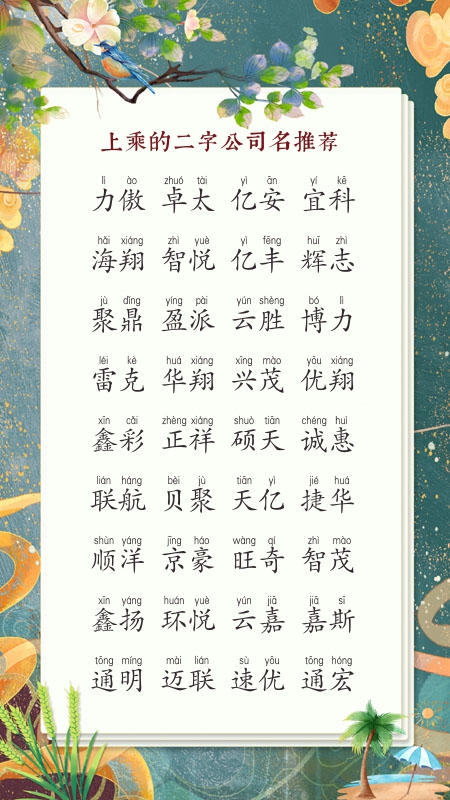 上乘的二字公司名推荐
lì ào zhuó tài yì ān yí kē
力傲 卓太 亿安 宜科
hǎi xiáng zhì yuè yì fēng huī zhì
海翔 智悦 亿丰 辉志
jù dǐng yíng pài yún shèng bó lì
聚鼎 盈派 云胜 博力
léi kè huá xiáng xīng mào yōu xiáng
雷克 华翔 兴茂 优翔
xīn cǎi zhèng xiáng shuò tiān chéng huì
鑫彩 正祥 硕天 诚惠
lián háng bèi jù tiān yì jié huá
联航 贝聚 天亿 捷华
shùn yáng jīng háo wàng qí zhì mào
顺洋 京豪 旺奇 智茂
xīn yáng huán yuè yún jiā jiā sī
鑫扬 环悦 云嘉 嘉斯
tōng míng mài lián sù yōu tōng hóng
通明 迈联 速优 通宏